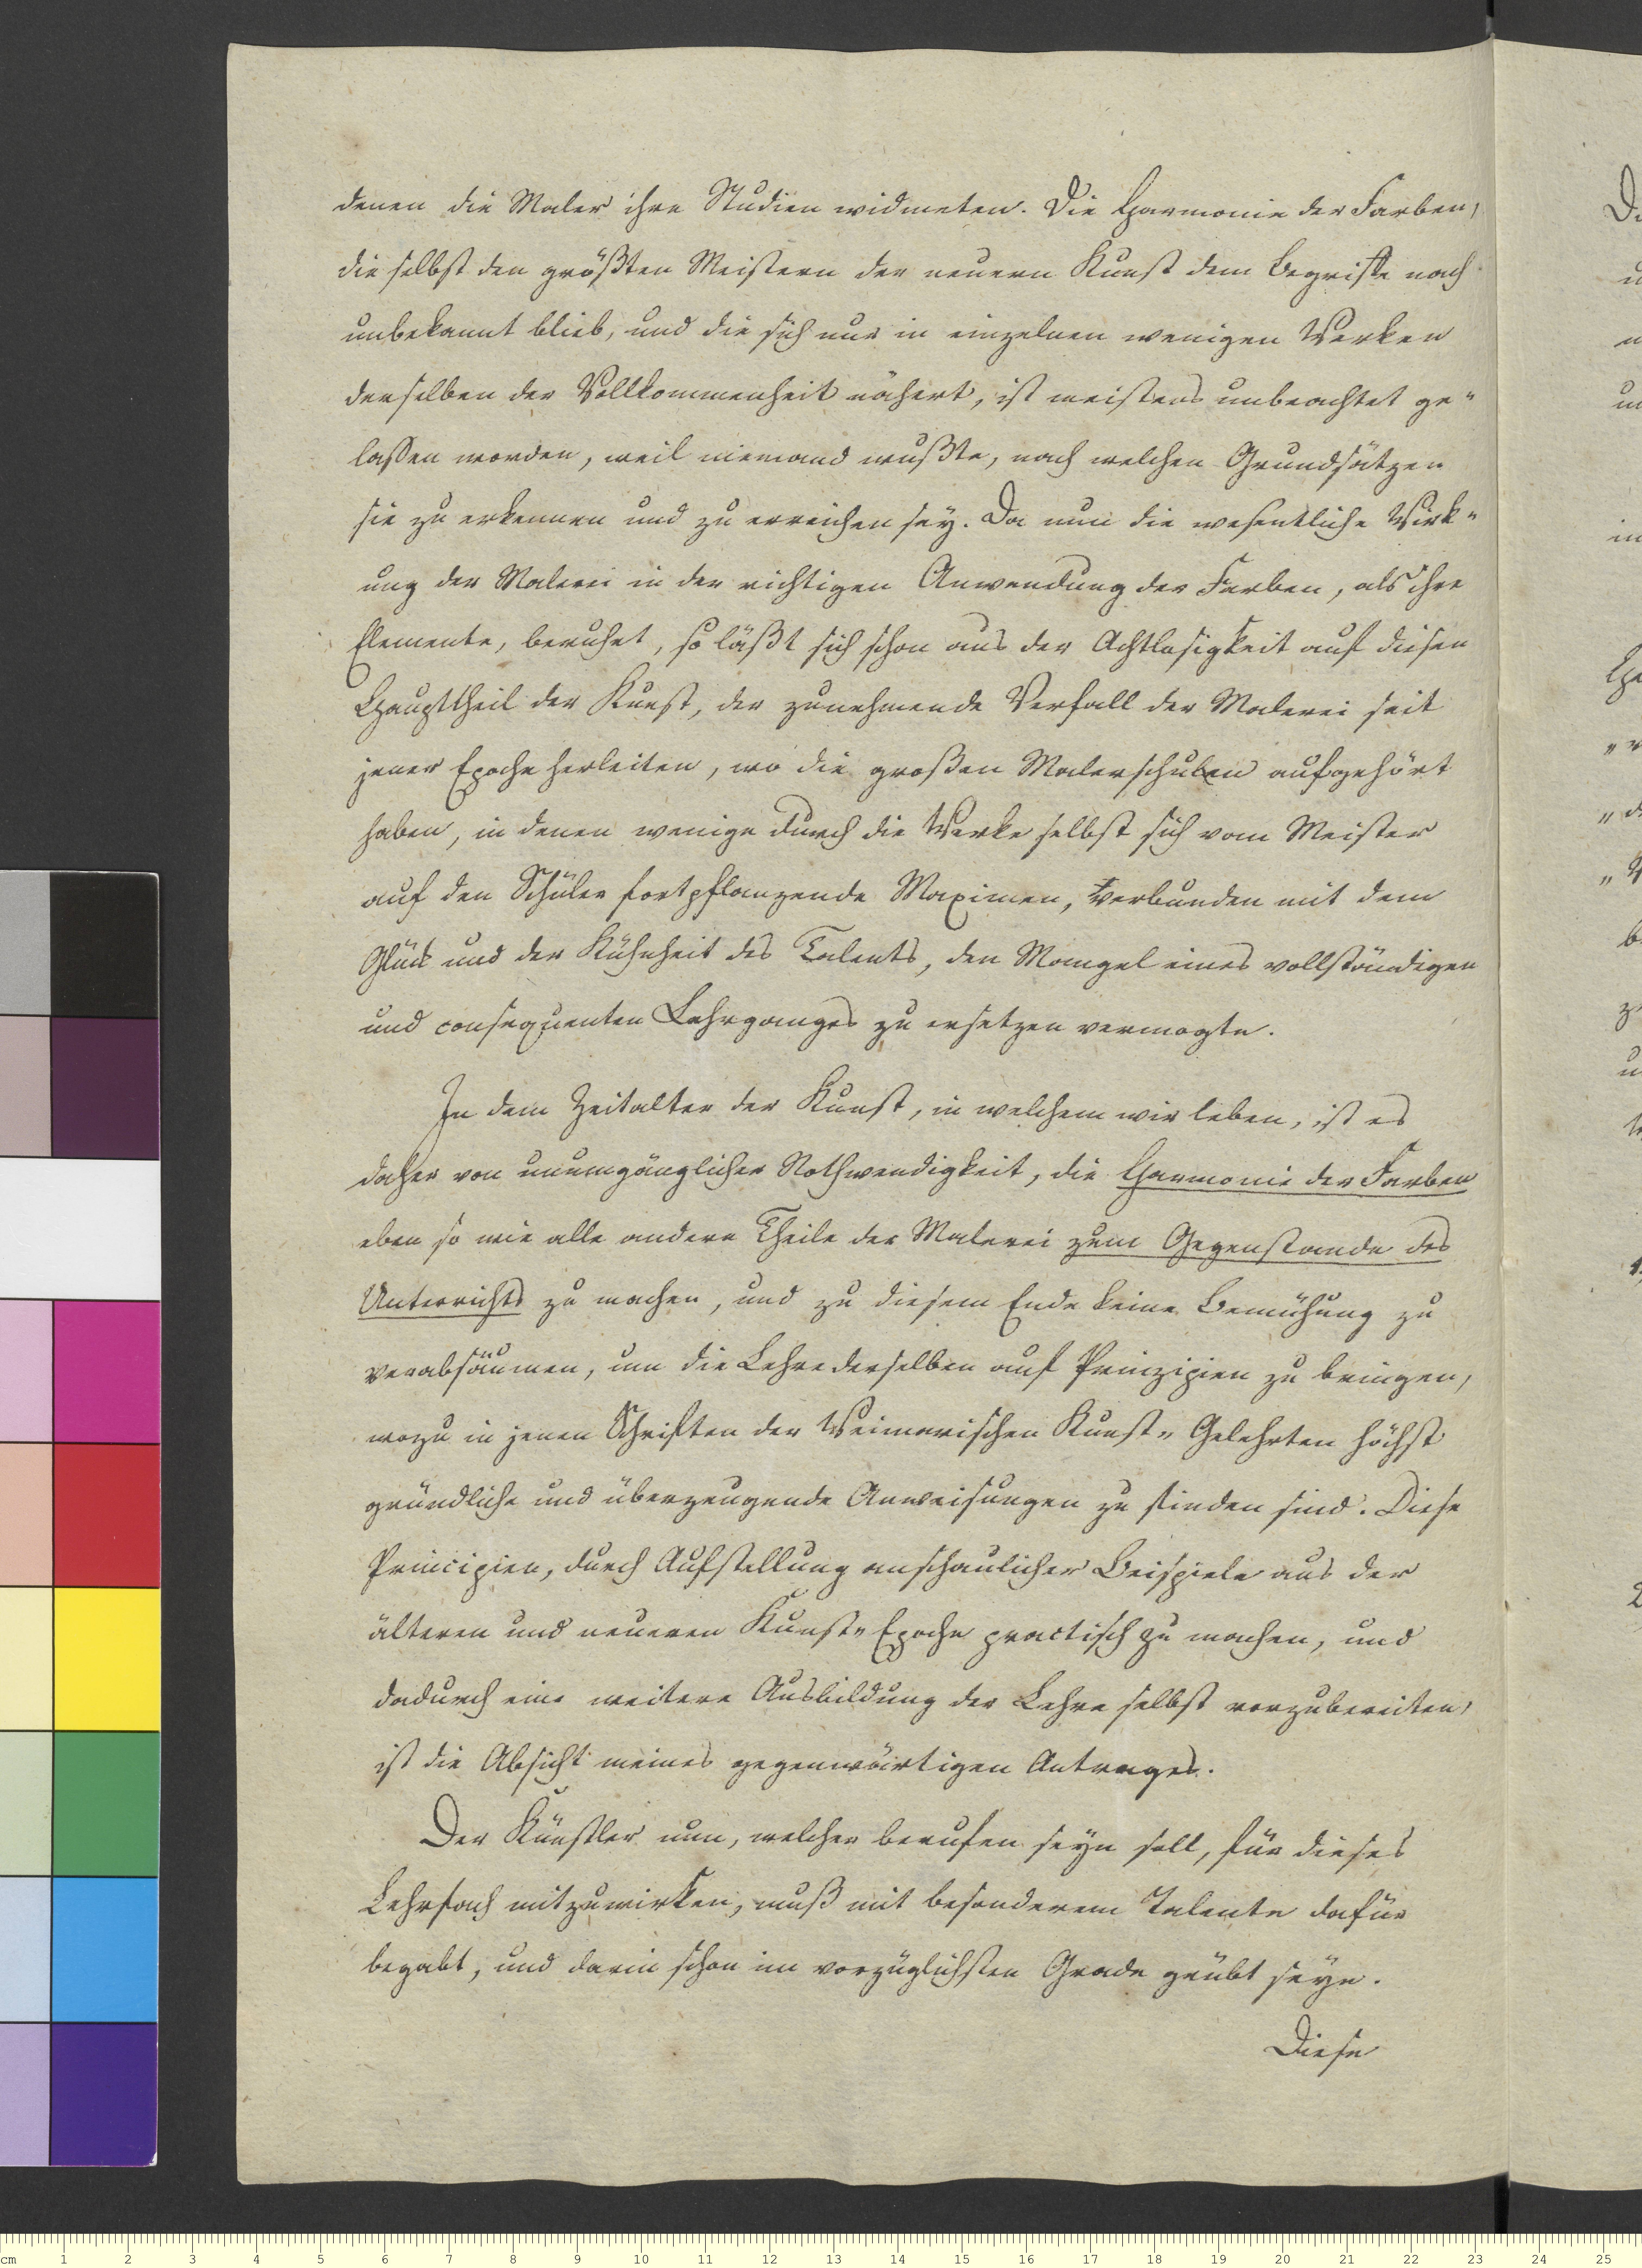 denen die Maler ihre Studien widmeten. Die Harmonie der Farben,
die selbst den größten Meistern der neuern Kunst dem Begriffe nach
unbekannt blieb, und die sich nur in einzelnen wenigen Werken
derselben der Vollkommenheit nähert, ist meistens unbeachtet ge-
lassen worden, weil niemand wußte, nach welchen Grundsätzen
sie zu erkennen und zu erreichen sey. Da nun die wesentliche Wirk-
ung der Malerei in der richtigen Anwendung der Farben, als ihre
Elemente, beruhet, so läßt sich schon aus der Achtlosigkeit auf diesen
Haupttheil der Kunst, der zunehmende Verfall der Malerei seit
jener Epoche herleiten, wo die großen Malerschulen aufgehört
haben, in denen wenige durch die Werke selbst sich vom Meister
auf den Schüler fortpflanzende Maximen, verbunden mit dem
Glück und der Kühnheit des Talents, den Mangel eines vollständigen
und consequenten Lehrganges zu ersetzen vermogte.
In dem Zeitalter der Kunst, in welchem wir leben, ist es
daher von unumgänglicher Nothwendigkeit, die Harmonie der Farben
eben so wie alle andere Theile der Malerei zum Gegenstande des
Unterrichts zu machen, und zu diesem Ende keine Bemühung zu
verabsäumen, um die Lehre derselben auf Prinzipien zu bringen,
wozu in jenen Schriften der Weimarischen Kunst-Gelehrten höchst
gründliche und überzeugende Anweisungen zu finden sind. Diese
Principien, durch Aufstellung anschaulicher Beispiele aus der
älteren und neueren Kunst-Epoche practisch zu machen, und
dadurch eine weitere Ausbildung der Lehre selbst vorzubereiten,
ist die Absicht meines gegenwärtigen Antrages.
Der Künstler nun, welcher berufen seyn soll, für dieses
Lehrfach mitzuwirken, muß mit besonderem Talente dafür
begabt, und darin schon im vorzüglichsten Grade geübt seyn.
Diese
cm 1 2 3 4 5 6 7 8 9 10 11 12 13 14 15 16 17 18 19 20 21 22 23 24 25